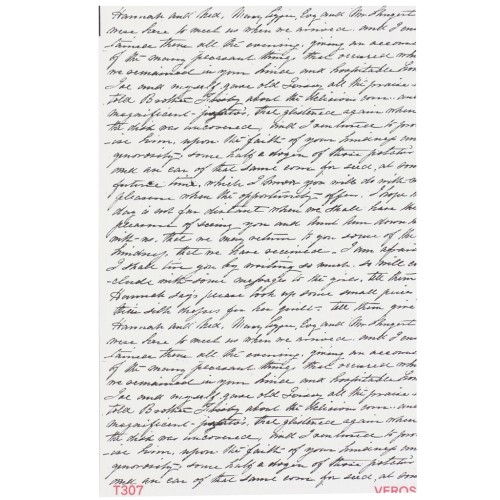 Hannah and Med, Mary Lyger, Esq and Mr
were here to meet us when we arrived, and I
them all the evening, giving an account
of the many pleasant things, that occured
we remained in your house and hospitable
Joe and myself gave old Jersey all the praise
told Brother about the corn and
magnificent that glistened again when
the dish was uncovered, and I ventured to
him, upon the faith of your kindness
generosity, some half a dozen of those
and an ear of that same corn for seed, at
future time, which I know you will do with
pleasure when the opportunity offers. I hope
day is not far distant when we shall have the
pleasure of seeing you and Aunt Ann down
with us, that we may return to you some of the
kindness, that we have received. I am afraid
I shall tire you by writing so much so will
clude with some messages to the girls, tell them
Hannah says please look up some small
silk for her quilt tell them
Hannah and Med, Mary Lyger, Esq and Mr
were here to meet us when we arrived, and I
them all the evening, giving an account
of the many pleasant things, that occured
we remained in your house and hospitable
Joe and myself gave old Jersey all the praise
told Brother about the corn and
magnificent that glistened again when
the dish was uncovered, and I ventured to
him, upon the faith of your kindness
generosity, some half a dozen of those
and an ear of that same corn for seed, at
T307 VEROS